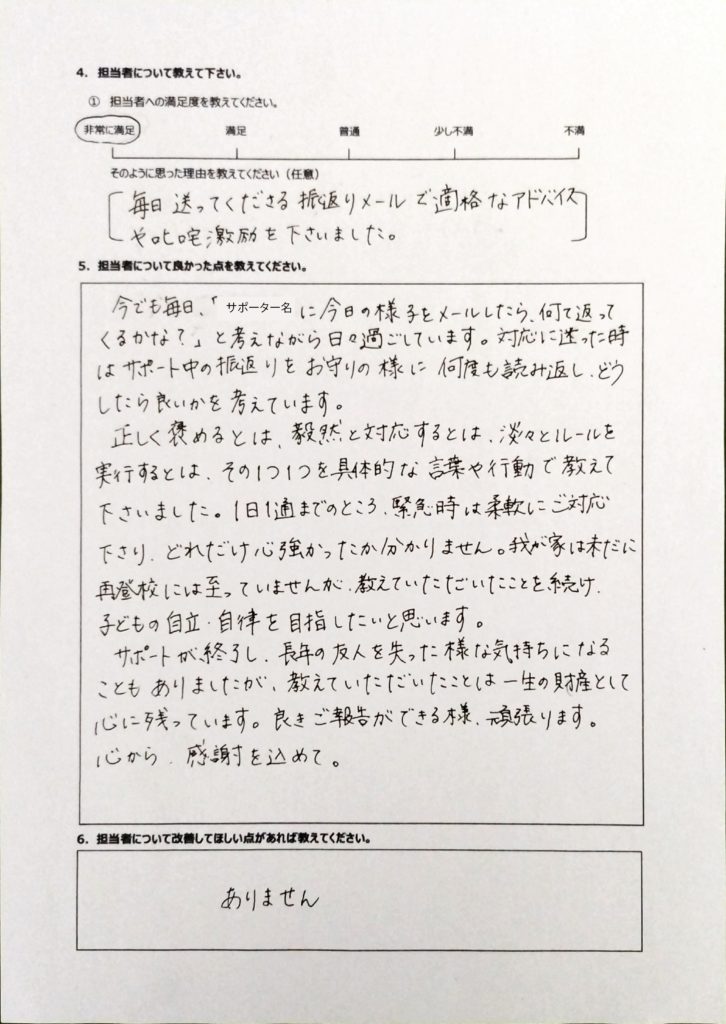 4. 担当者について教えて下さい。
① 担当者への満足度を教えてください。
非常に満足 満足 普通 少し不満 不満
そのように思った理由を教えてください（任意）
毎日送ってくださる振返りメールで適格なアドバイス
や叱咤激励を下さいました。
5. 担当者について良かった点を教えてください。
今でも毎日、「サポーター名に今日の様子をメールしたら、何て返って
くるかな？」と考えながら日々過ごしています。対応に迷った時
はサポート中の振返りをお守りの様に何度も読み返し、どう
したら良いかを考えています。
正しく褒めるとは、毅然と対応するとは、淡々とルールを
実行するとは、その1つ1つを具体的な言葉や行動で教えて
下さいました。1日1通までのところ、緊急時は柔軟にご対応
下さり、どれだけ心強かったか分かりません。我が家は未だに
再登校には至っていませんが、教えていただいたことを続け、
子どもの自立・自律を目指したいと思います。
サポートが終了し、長年の友人を失った様な気持ちになる
こともありましたが、教えていただいたことは一生の財産として
心に残っています。良きご報告ができる様、頑張ります。
心から、感謝を込めて。
6. 担当者について改善してほしい点があれば教えてください。
ありません